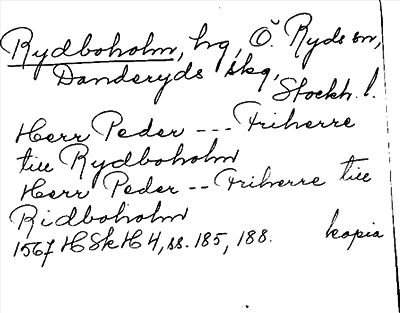 Rydboholm, hg, Ö. Ryds sn,
Danderyds skg,
Stockh. l.
Herr Peder --- Friherre
till Rydboholm
Herr Peder -- Friherre till
Ridboholm
1567 HSkH 4, ss. 185, 188. kopia